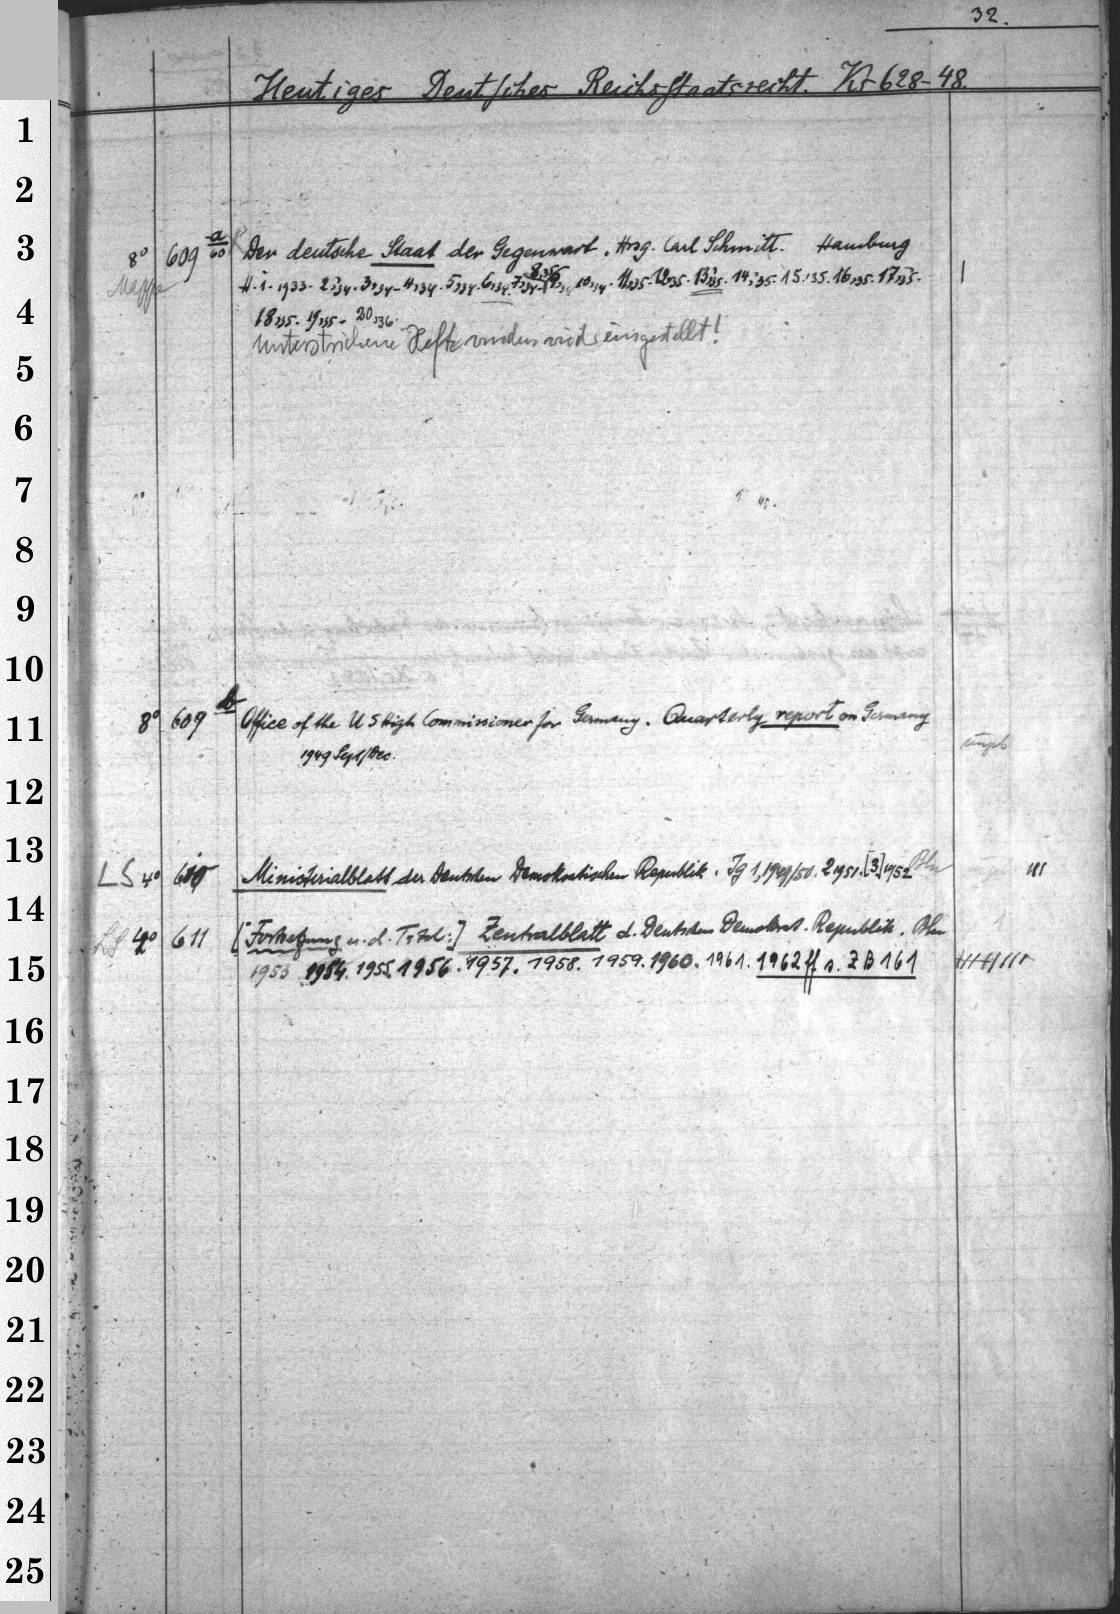 32.
Heutiges Deutsches Reichsstaatsrecht. Kr 628-48.
1
2
3 8° 609 a/60 Der deutsche Staat der Gegenwart. Hrsg. Carl Schmitt. Hamburg
Mappe H. 1. 1933. 2,34. 3,34. 4,34. 5,34. 6,34. 7,34. 8,35 10,34. 11,35. 12,35. 13,35. 14,35. 15,35. 16,35. 17,35. |
4 18,35. 19,35. 20,36.
Unterstrichene Hefte wurden nicht eingestellt!
5
6
7
8
9
10
11 8° 609 b Office of the US High Commissioner for Germany. Quarterly report on Germany
1949 Sept/Dec.
12
13 LS 4° 610 Ministerialblatt der Deutschen Demokratischen Republik. Jg 1,1949/50. 2 1951. [3] 1952 Bln III
14 LS 4° 611 [Fortsetzung u. d. Titel:] Zentralblatt d. Deutschen Demokrat. Republik. Bln
15 1953 1954. 1955 1956. 1957. 1958. 1959. 1960. 1961. 1962 ff s. ZB 161
16
17
18
19
20
21
22
23
24
25